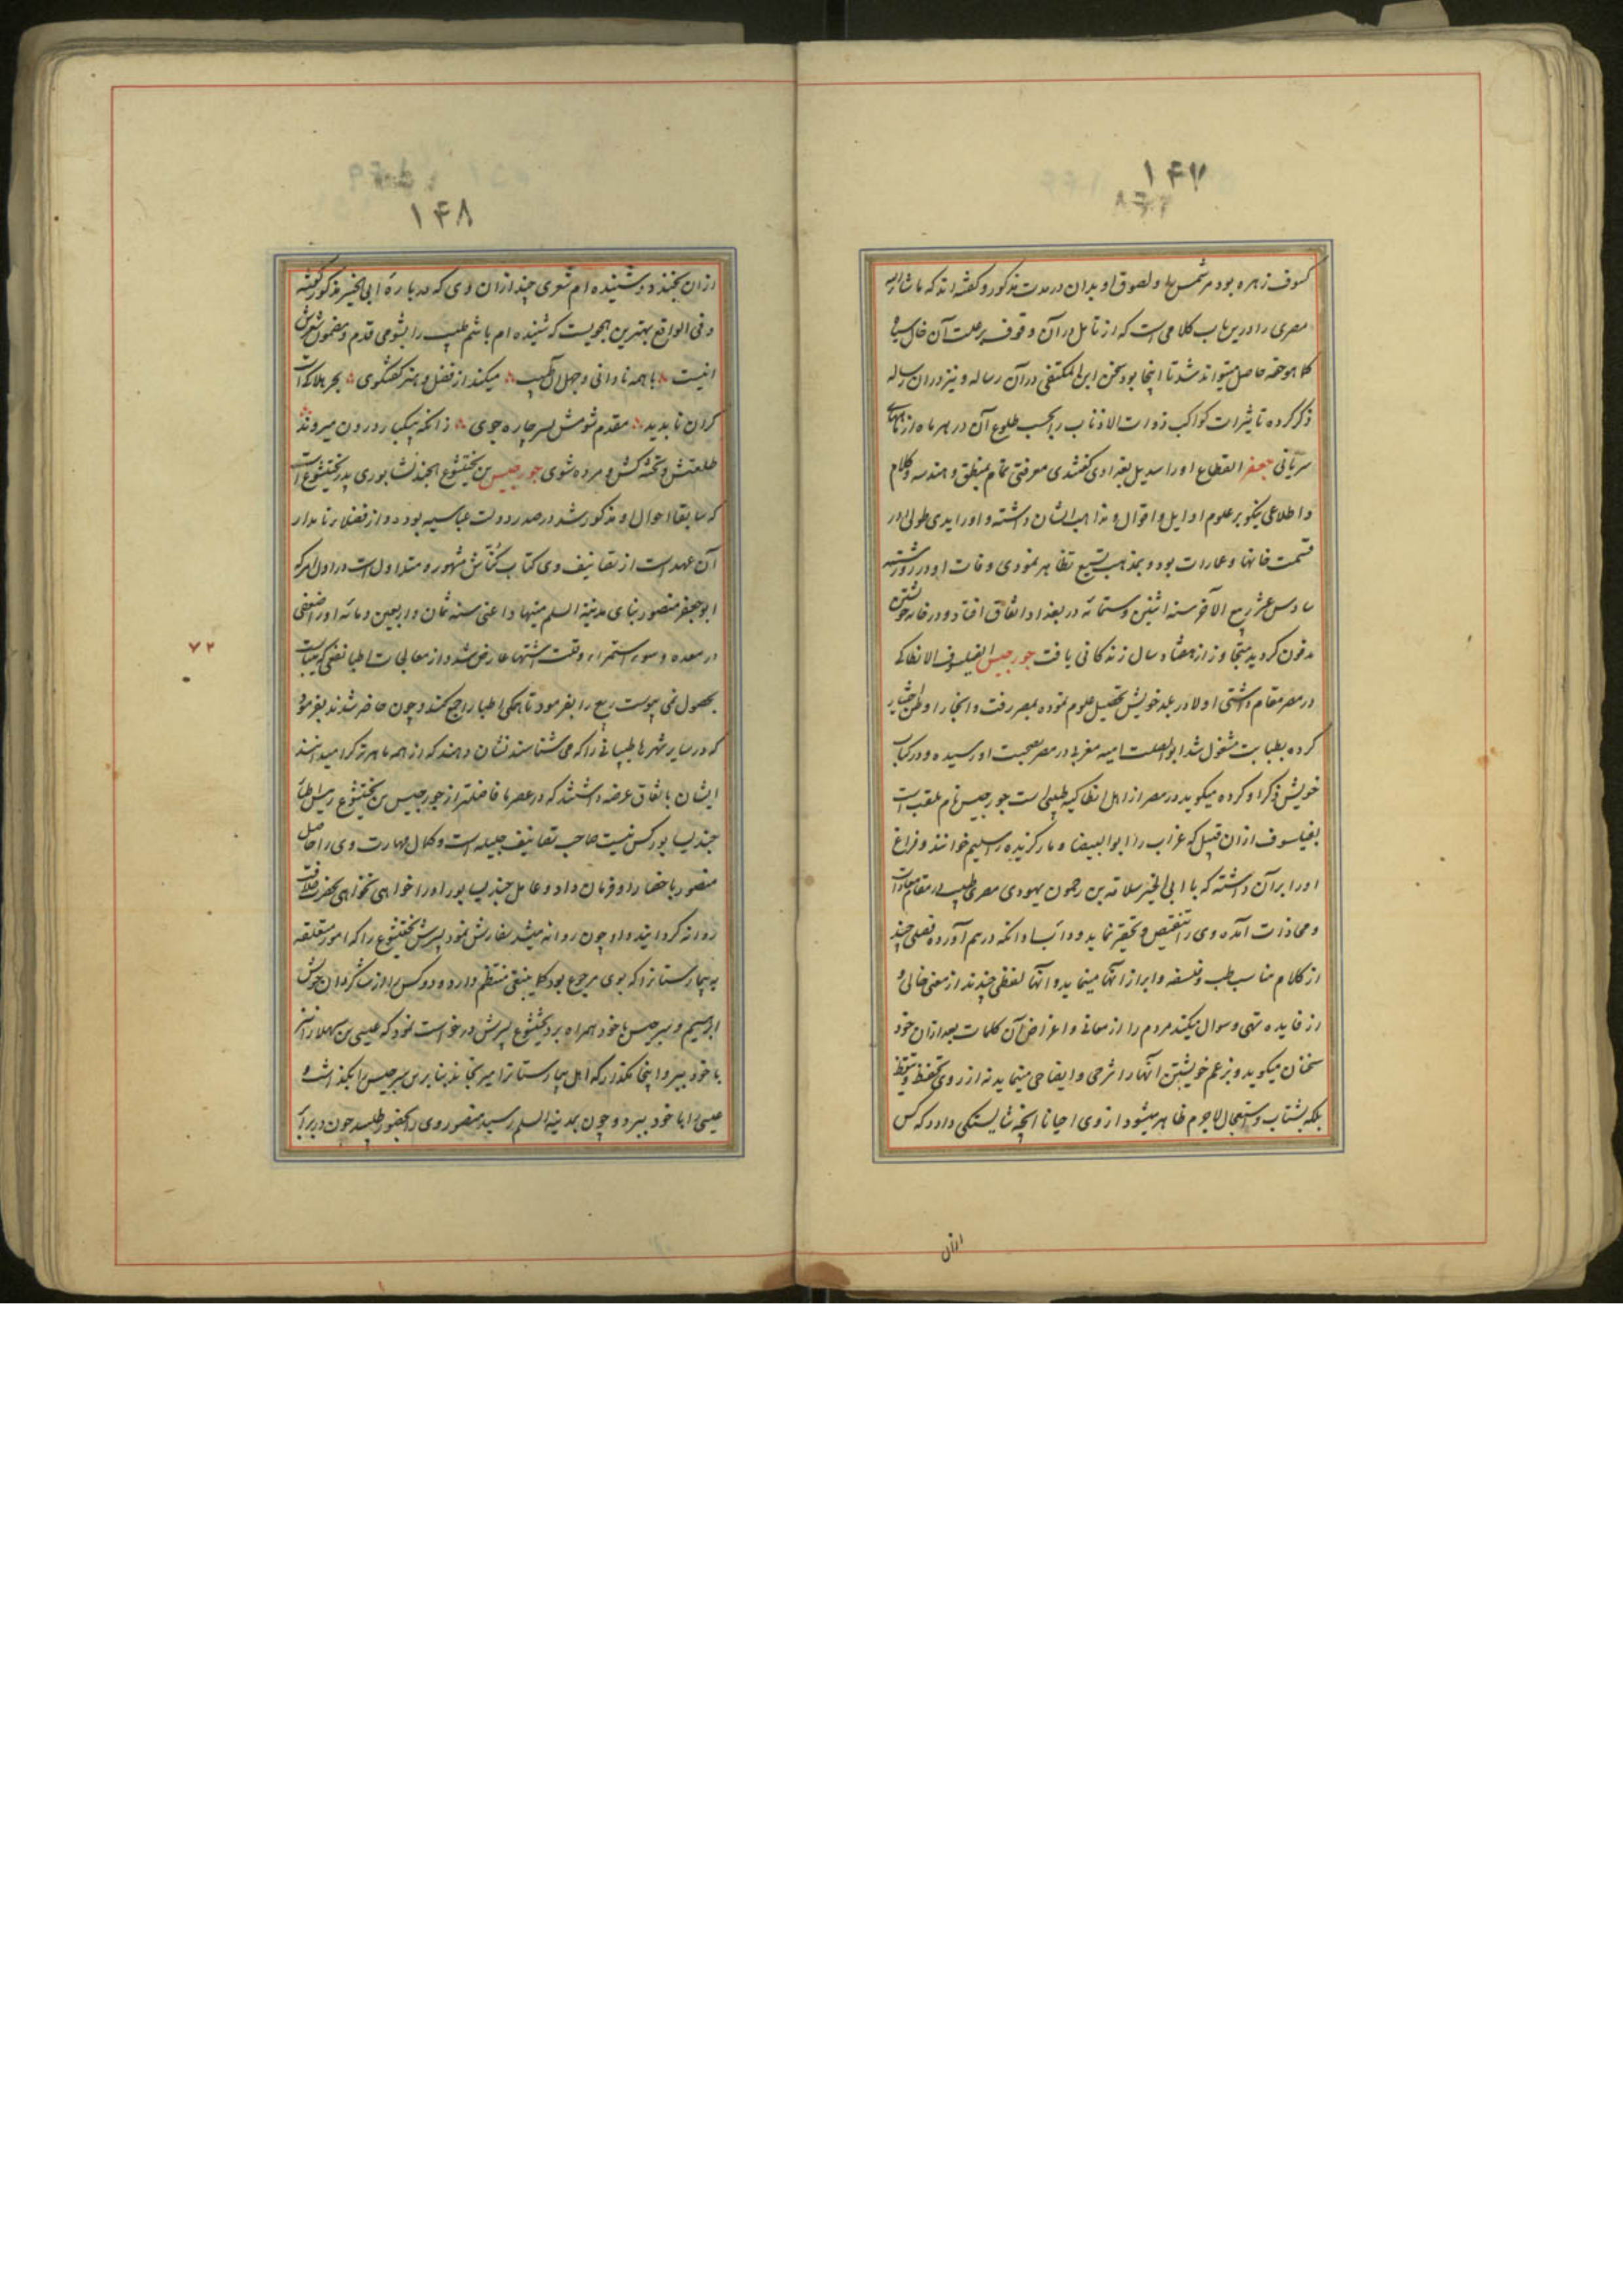 ۱۴۷
کسوف زهره بود مر شمس را و لصوق او بدان در مدت مذکور و گفته اند که ماشاء الله
مصری را درین باب کلامی است که از تامل در آن و وقوف بر علت آن خال سیاه
کما هو حقه حاصل میتواند شد تا اینجا بود سخن ابن المکتفی در آن رساله و نیز در آن رساله
ذکر کرده تاثیرات کواکب ذوات الاذناب را بحسب طلوع آن در هر ماه از ماههای
سریانی جعفر القطاع او را سدید بغدادی گفتندی معرفتی تمام بمنطق و هندسه و کلام
و اطلاعی نیکو بر علوم اوایل و اقوال و مذاهب ایشان داشته و او را یدی طولی در
قسمت خانها و عمارات بود و بمذهب تشیع تظاهر نمودی وفات او در روز شنبه
سادس عشر ربیع الآخر سنه اثنین و ستمائه در بغداد اتفاق افتاد و در خانه خویشتن
مدفون گردید متجاوز از هفتاد سال زندگانی یافت جورجیس الفیلسوف الانطاکی
در مصر مقام داشتی اولا در بلد خویش تحصیل علوم نموده بمصر رفت و انجا را وطن اختیار
کرده بطبابت مشغول شد ابوالصلت امیه مغربی در مصر بصحبت او رسیده و در کتاب
خویش ذکر او کرده میگوید در مصر از اهل انطاکیه طبیبی است جورجیس نام ملقب است
بفیلسوف از آن قبیل که غراب را ابوالبیضا و مارگزیده را سلیم خوانند و فراغ
او را بر آن داشته که با ابی الخیر سلامة بن رحمون یهودی مصری طبیب در مقام معادات
و محاذات آمده وی را تنقیص و تحقیر نماید و دأبا دائما درهم آورده فصلی چند
از کلام مناسب طب و فلسفه و ابراز آنها مینماید و آنها لفظی چندند از معنی خالی و
از فایده تهی و سوال میکند مردم را از معانی و اغراض آن کلمات بعد از آن خود
سخنان میگوید و بزعم خویشتن آنها را شرحی و ایضاحی مینماید نه از روی تحفظ و تیقظ
بلکه بشتاب و استعجال لاجرم ظاهر میشود از وی احیانا آنچه شایستگی دارد که کس
ازان
۱۴۸
از آن بخندد و شنیده ام شعری چند از آن وی که درباره ابی الخیر مذکور گفته
و فی الواقع بهترین هجویست که شنیده ام باشم طبیب را بشومی قدم و مضمون شعرش
انیست با همه نادانی و جهل آن طبیب میکند از فضل و هنر گفتگوی بحر هلاک است
کران ناپدید مقدم شومش بسر چاره جوی زانکه بیکبار درون میروند
طلعتش و تخته کش و مرده شوی جورجیس بن بختیشوع الجندیشابوری پدر بختیشوع است
که سابقا احوال او مذکور شد در صدر دولت عباسیه بوده و از فضلاء نامدار
آن عهد است از تصانیف وی کتاب کنّاش مشهور و متداول است در اول امر که
ابوجعفر منصور بنای مدینة السلم مینهاد اعنی سنه ثمان و اربعین و مائه او را ضعفی
در معده و سوء استمراء و قلت اشتها عارض شد و از معالجات اطبا نفعی که میبایست
بحصول نمی پیوست ربیع را بفرمود تا همگی اطبا را جمع کنند و چون حاضر شدند بفرمود
که در سایر شهرها طبیبانی را که می شناسند نشان دهند که از همه ماهرتر کرا میدانند
ایشان باتفاق عرضه داشتند که در عصر ما فاضلتر از جورجیس بن بختیشوع رئیس اطباء
جندیسابور کس نیست صاحب تصانیف جلیله است و کمال مهارت وی را حاصل
منصور باحضار او فرمان داد و عامل جندیسابور او را خواهی نخواهی بحضرت خلافت
روانه گردانید و او چون روانه میشد سفارش نمود پسرش بختیشوع را که امور متعلقه
به بیمارستان را که بوی مرجوع بود کما ینبغی منتظم دارد و دو کس را از شاگردان خویش
ابرهیم و سرجیس با خود همراه برد بختیشوع پسرش درخواست نمود که عیسی بن سهلا را نیز
با خود ببر و اینجا مگذار که اهل بیمارستان را میرنجاند بنابراین سرجیس را بگذاشت و
عیسی را با خود ببرد و چون بمدینة السلم رسید منصور وی را بحضور طلبید چون در برابر
۷۲